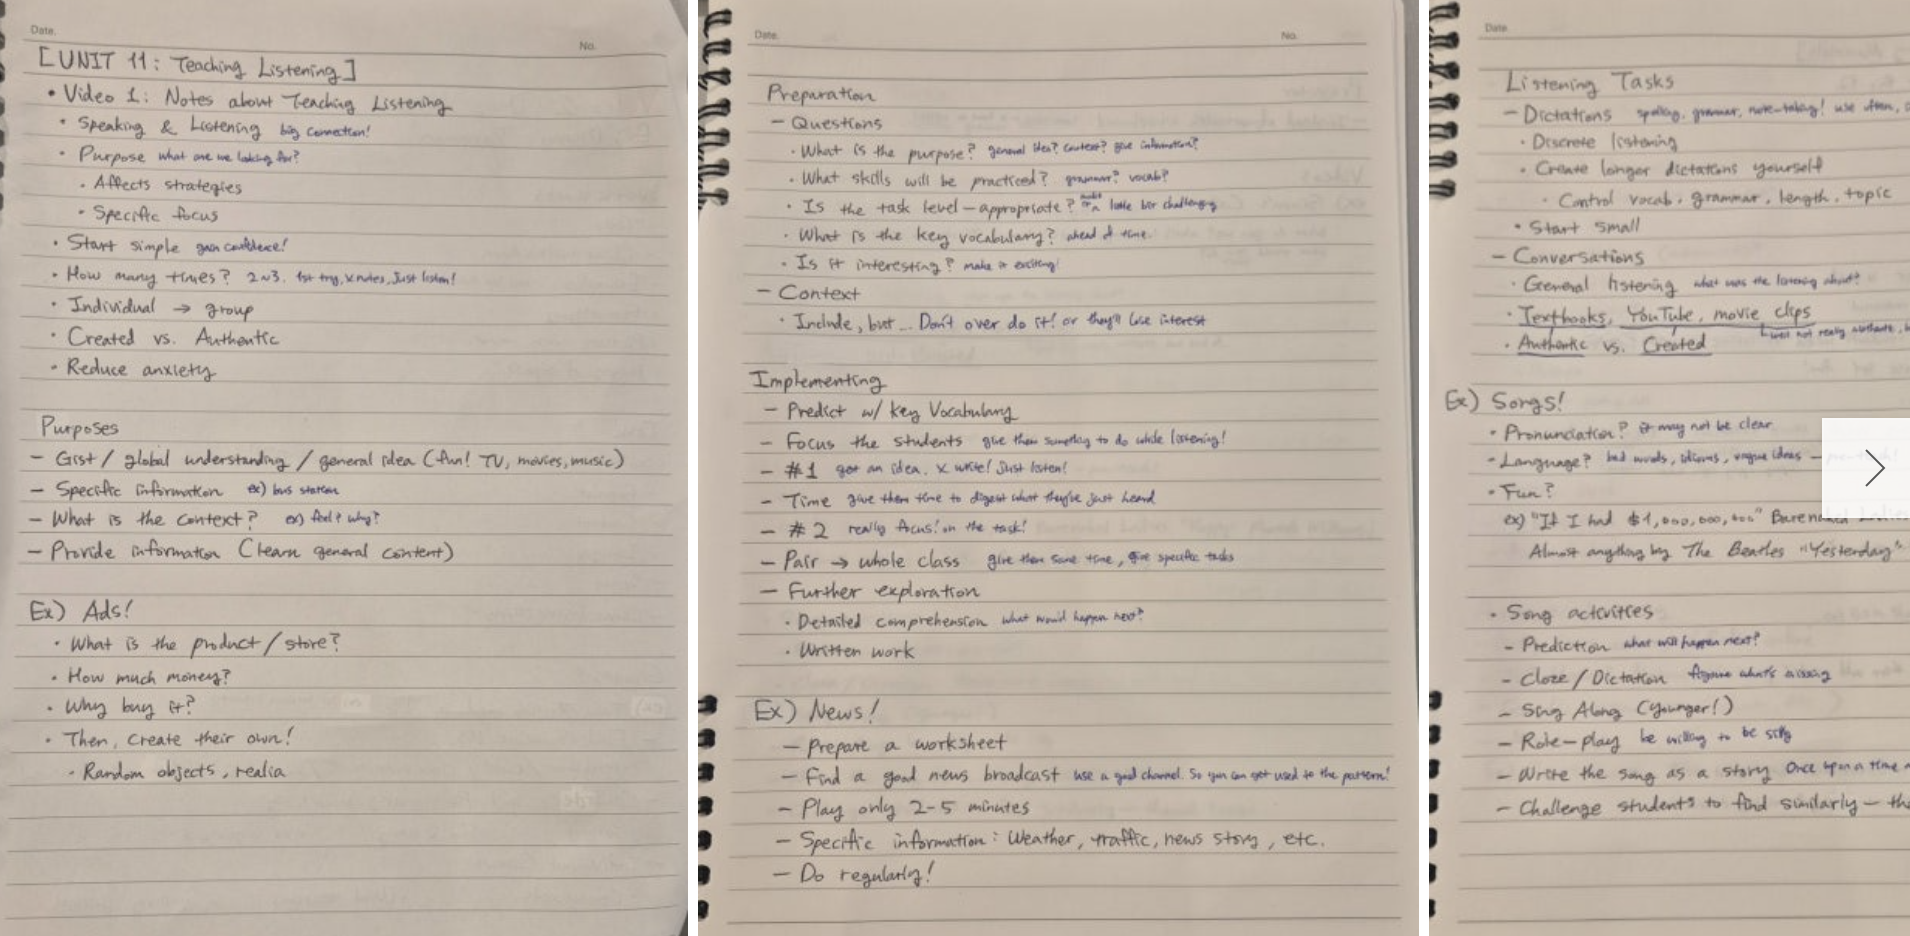 Date.
No.
[UNIT 11: Teaching Listening]
• Video 1: Notes about Teaching Listening
• Speaking & Listening big connection!
• Purpose what are we looking for?
• Affects strategies
• Specific focus
• Start simple gain confidence!
• How many times? 2~3. 1st try, x notes, Just listen!
• Individual → group
• Created vs. Authentic
• Reduce anxiety
Purposes
– Gist / global understanding / general idea (fun! TV, movies, music)
– Specific information ex) bus station
– What is the context? ex) feel? why?
– Provide information (learn general content)
Ex) Ads!
• What is the product / store?
• How much money?
• Why buy it?
• Then, create their own!
• Random objects, realia
Date.
No.
Preparation
– Questions
• What is the purpose? general idea? context? give information?
• What skills will be practiced? grammar? vocab?
• Is the task level-appropriate? make it a little bit challenging
• What is the key vocabulary? ahead of time.
• Is it interesting? make it exciting!
– Context
• Include, but... Don't over do it! or they'll lose interest
Implementing
– Predict w/ key Vocabulary
– Focus the students give them something to do while listening!
– #1 get an idea. x write! Just listen!
– Time give them time to digest what they've just heard
– #2 really focus! on the task!
– Pair → whole class give them some time, give specific tasks
– Further exploration
• Detailed comprehension what would happen next?
• Written work
Ex) News!
– Prepare a worksheet
– Find a good news broadcast use a good channel. So you can get used to the pattern!
– Play only 2-5 minutes
– Specific information: Weather, traffic, news story, etc.
– Do regularly!
Date.
Listening Tasks
– Dictations spelling, grammar, note-taking! use often,
• Discrete listening
• Create longer dictations yourself
• Control vocab, grammar, length, topic
• Start small
– Conversations
• General listening what was the listening about?
• Textbooks, YouTube, movie clips
well not really authentic,
• Authentic vs. Created
Ex) Songs!
• Pronunciation? it may not be clear
• Language? bad words, idioms, vague ideas –
• Fun?
ex) "If I had $1,000,000,000"
Almost anything by The Beatles "Yesterday"
• Song activities
– Prediction what will happen next?
– Cloze / Dictation figure what's missing
– Sing Along (younger!)
– Role-play be willing to be silly
– Write the song as a story Once upon a time
– Challenge students to find similarly –